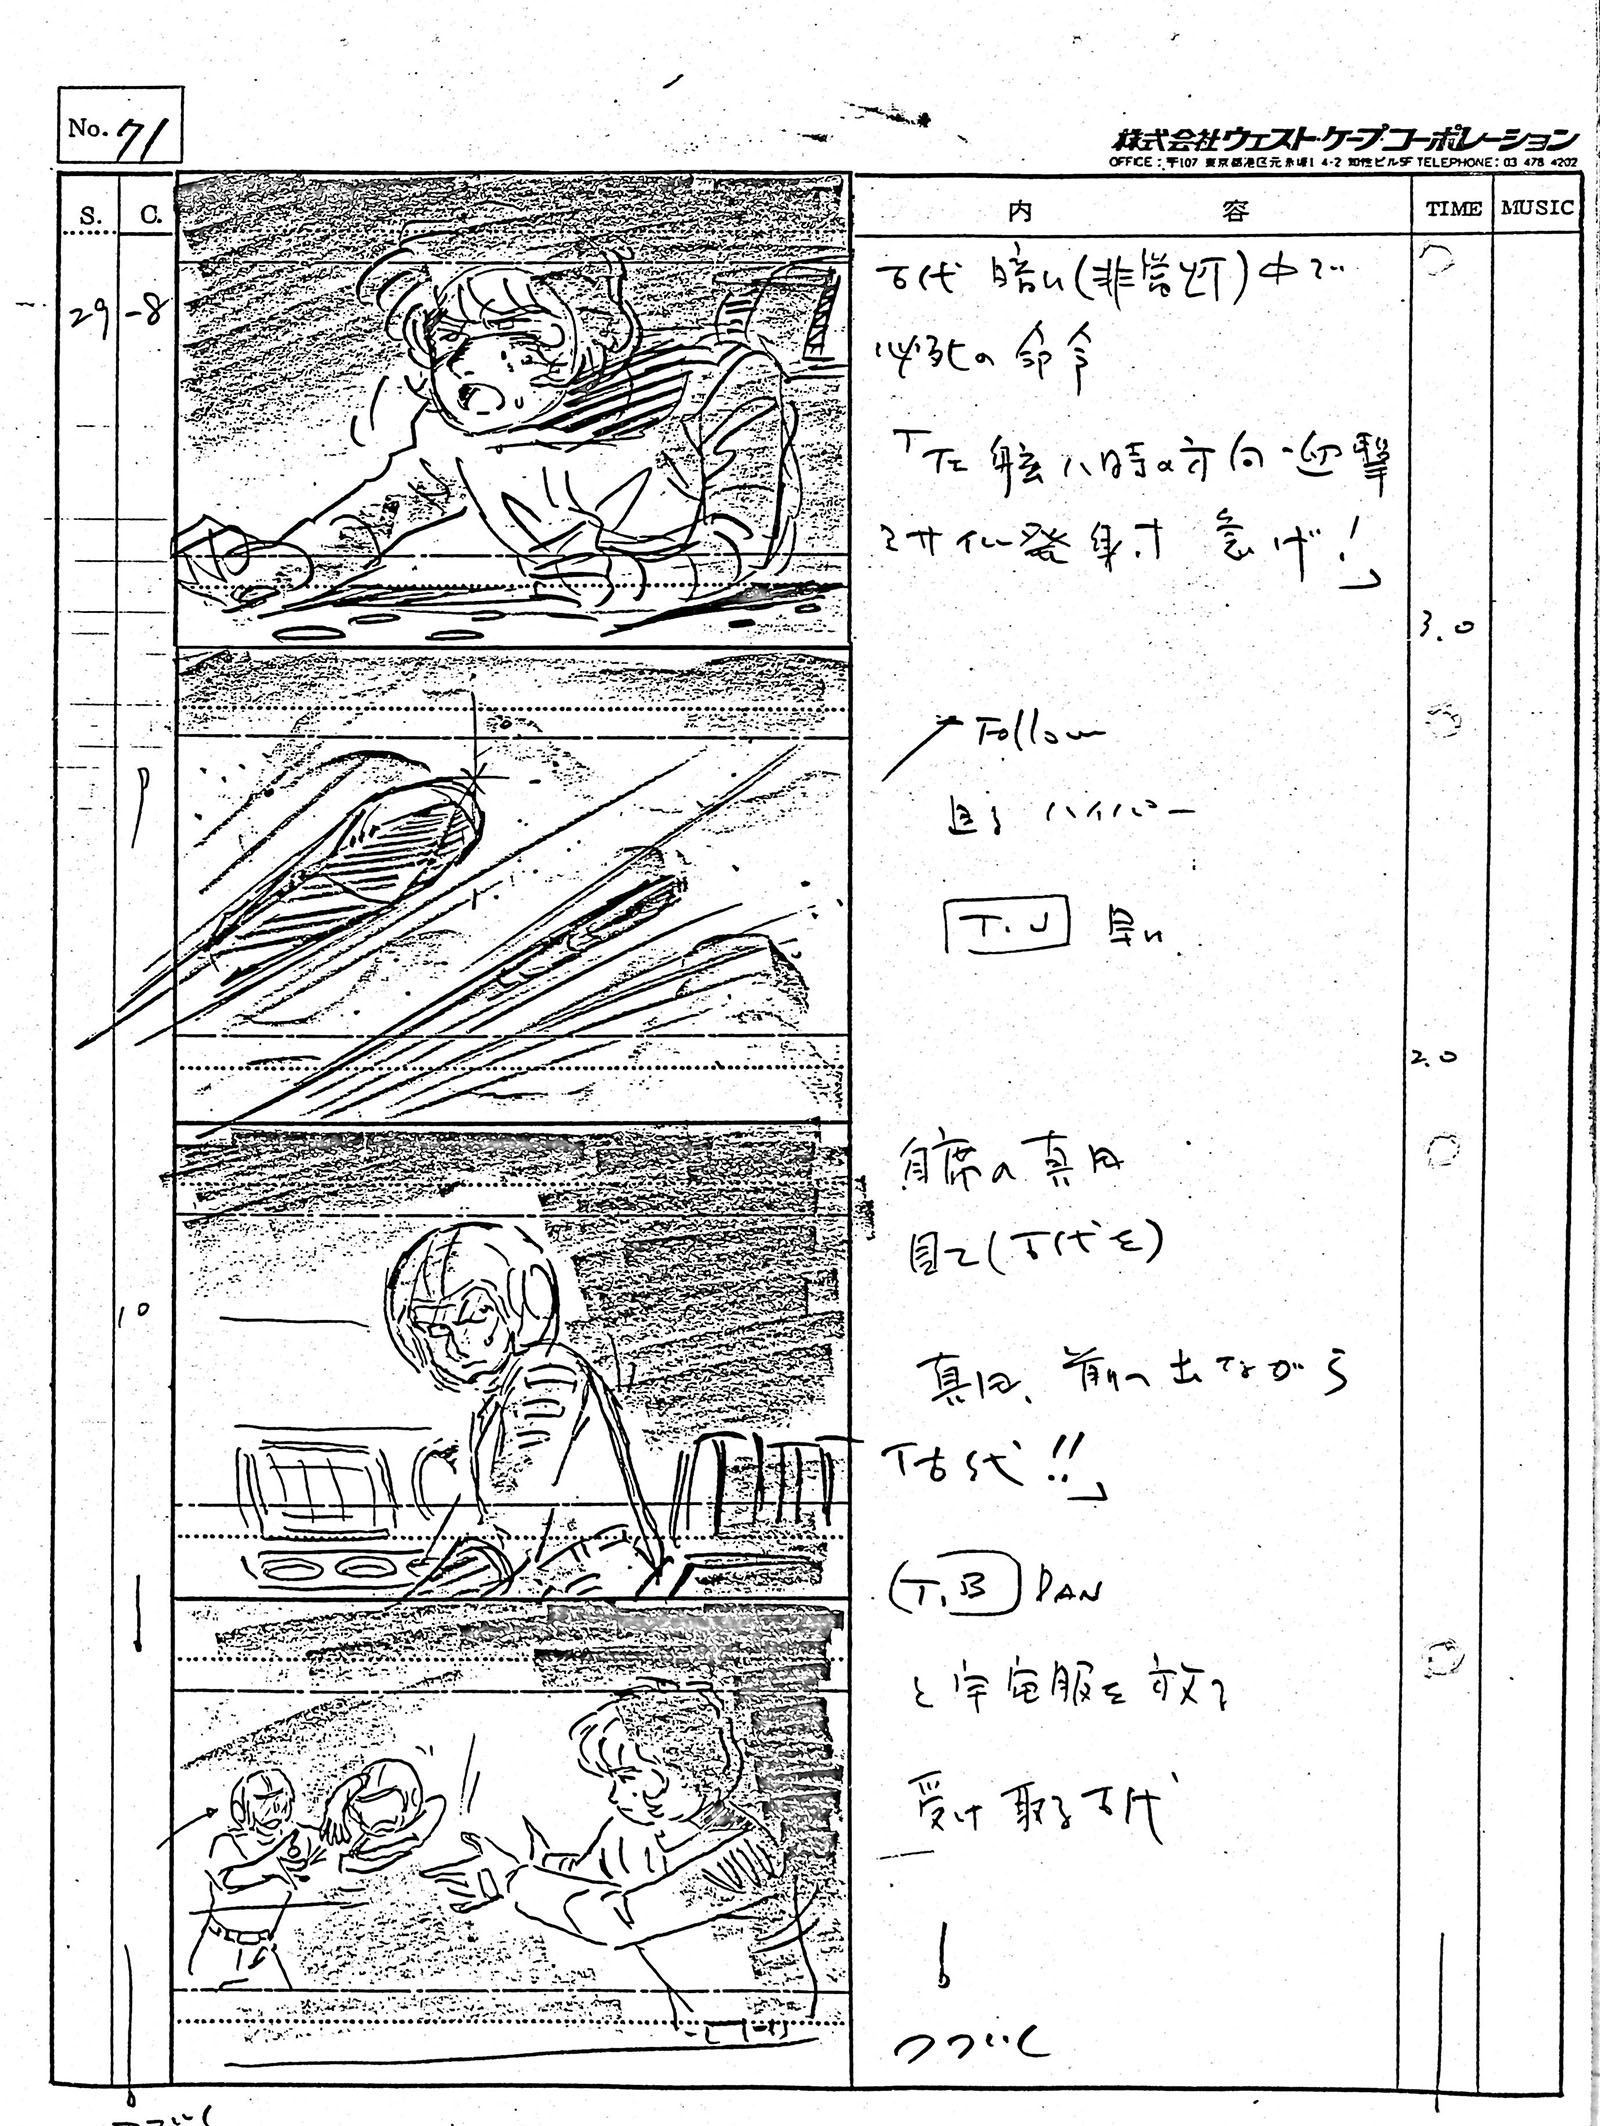 No. 71
株式会社ウェスト・ケープ・コーポレーション
OFFICE:〒107 東京都港区元赤坂1 4-2 知性ビル5F TELEPHONE: 03 478 4202
S. C. 内容 TIME MUSIC
29 -8
古代 暗い(非常灯)中で
必死の命令
「左舷八時の方向 迎撃
ミサイル発射 急げ!」
3.0
9
Follow
迫るハイパー
T.U 早い
2.0
10
自席の真田
見て(古代を)
真田、前へ出ながら
「古代!!」
T.B PAN
と宇宙服を放る
受け取る古代
つづく
つづく